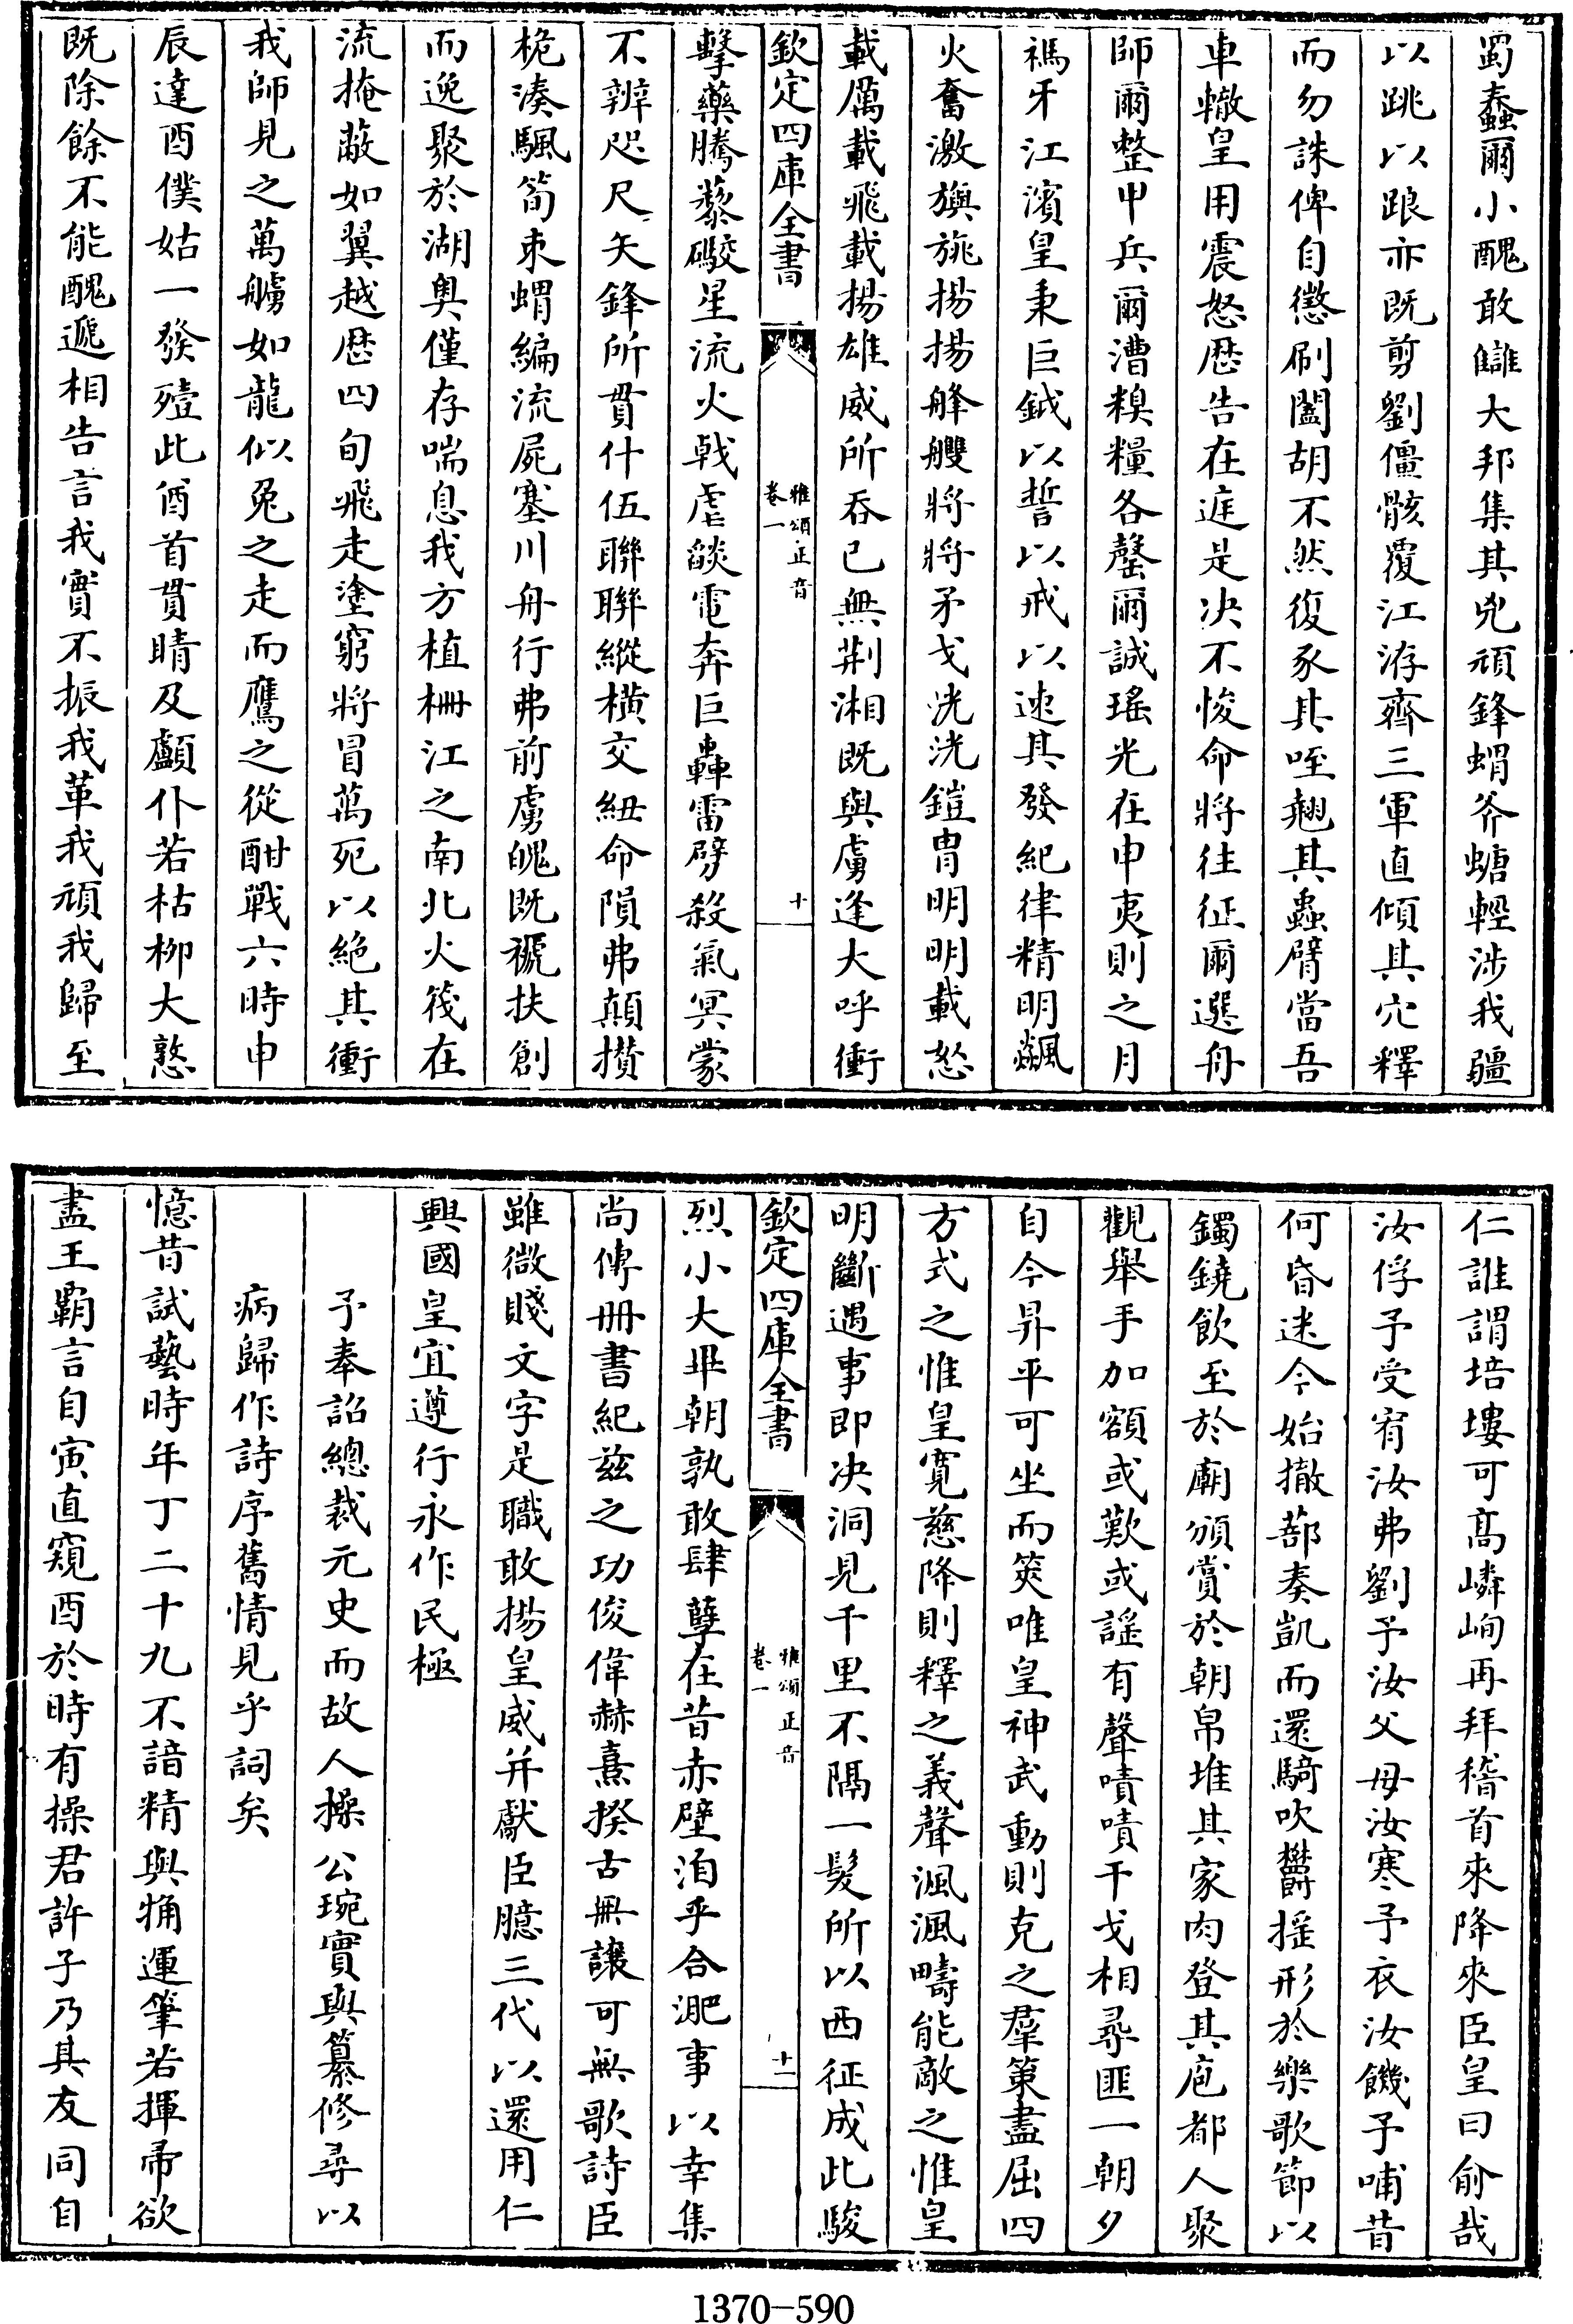 蜀蠢爾小醜敢讎大邦集其兇頑鋒蝟斧螗輕涉我疆
以跳以踉亦既剪劉僵骸覆江洊齊三軍直傾其穴釋
而勿誅俾自懲刷闔胡不然復豕其咥翹其蟲臂當吾
車轍皇用震怒歴告在庭是决不悛命將往征爾選舟
師爾整甲兵爾漕糗糧各罄爾誠瑤光在申夷則之月
禡牙江濱皇秉巨鉞以誓以戒以速其發紀律精明飈
火奮激旟旐揚揚舽艭將將矛戈洸洸鎧胄明明載怒
載厲載飛載揚雄威所吞已無荆湘既與虜逢大呼衝
欽定四庫全書
雅頌正音
卷一
十
擊藥騰藜礮星流火戟虐燄電奔巨轟雷劈殺氣冥蒙
不辨咫尺矢鋒所貫什伍聯聯縱横交紐命隕弗顛攢
桅湊颿筍束蝟編流屍塞川舟行弗前虜魄既褫扶創
而逸聚於湖奥僅存喘息我方植柵江之南北火筏在
流掩蔽如翼越歴四旬飛走塗窮將冒萬死以絶其衝
我師見之萬艣如龍似兔之走而鷹之從酣戰六時申
辰達酉僕姑一發殪此酋首貫睛及顱仆若枯柳大憝
既除餘不能醜遞相告言我實不振我革我頑我歸至
仁誰謂培塿可髙嶙峋再拜稽首來降來臣皇曰俞哉
汝俘予受宥汝弗劉予汝父母汝寒予衣汝饑予哺昔
何昏迷今始撤蔀奏凱而還騎吹欝摇形於樂歌節以
鐲鐃飲至於廟頒賞於朝帛堆其家肉登其庖都人聚
觀舉手加額或歎或謡有聲嘖嘖干戈相尋匪一朝夕
自今昇平可坐而筴唯皇神武動則克之羣策盡屈四
方式之惟皇寛慈降則釋之義聲渢渢疇能敵之惟皇
明斷遇事即决洞見千里不隔一髮所以西征成此駿
欽定四庫全書
雅頌正音
卷一
十一
烈小大畢朝孰敢肆孽在昔赤壁洎乎合淝事以幸集
尚傳册書紀兹之功俊偉赫熹揆古無讓可無歌詩臣
雖微賤文字是職敢揚皇威并獻臣臆三代以還用仁
興國皇宜遵行永作民極
予奉詔總裁元史而故人操公琬實與纂修尋以
病歸作詩序舊情見乎詞矣
憶昔試藝時年丁二十九不諳精與觕運筆若揮帚欲
盡王覇言自寅直窺酉於時有操君許子乃其友同自
1370-590